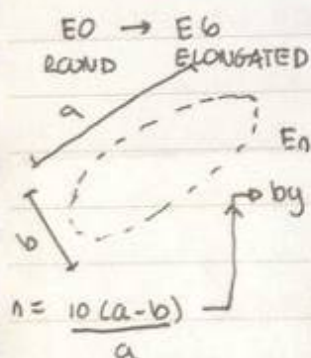 E0 → E6
ROUND ELONGATED
a
En
by
b
n = 10(a-b)
a